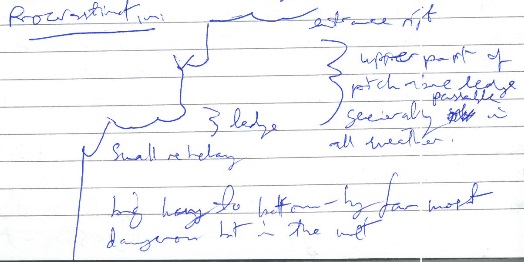 entrance rift
upper part of
pitch
ledge
passable
generally in
all weather.
} ledge
Small rebelay
big hang to bottom - by far most
dangerous bit in the wet